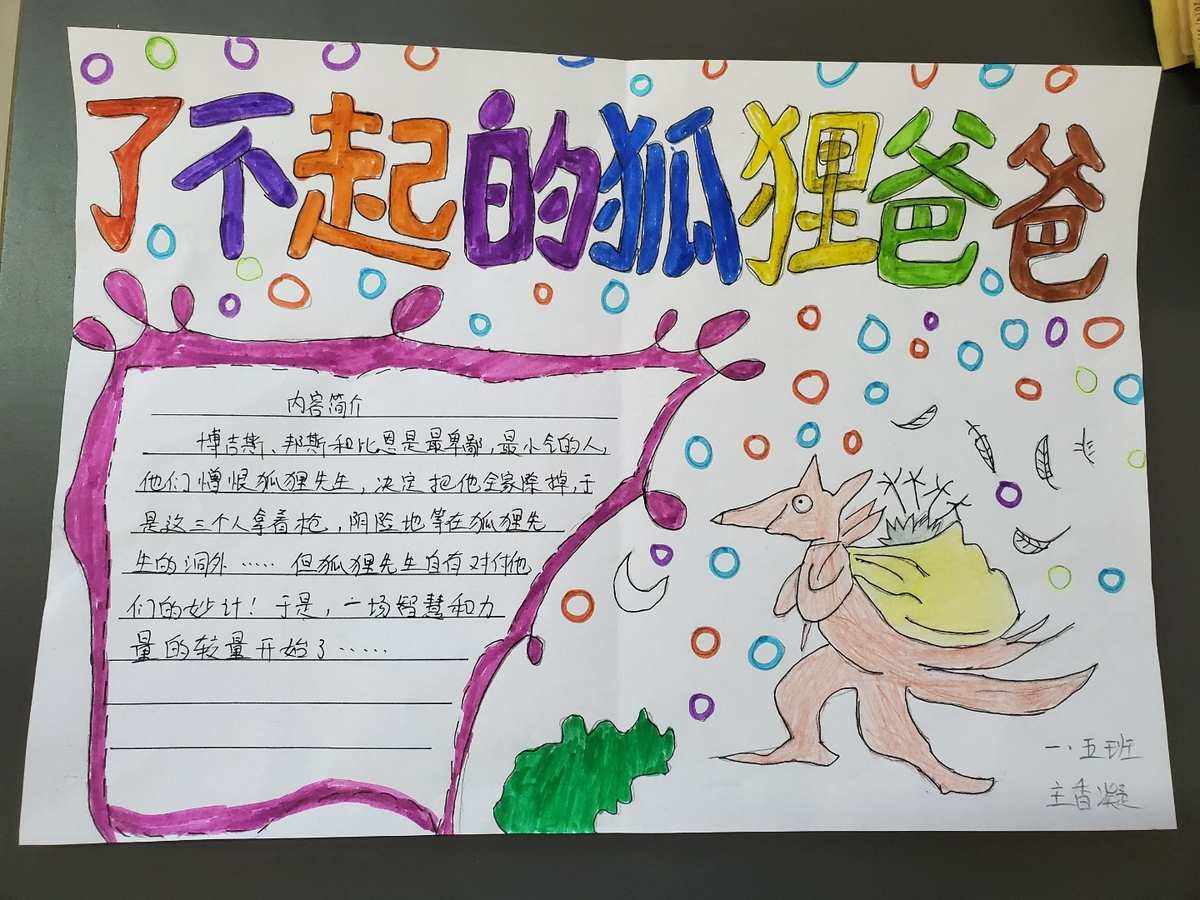 了不起的狐狸爸爸
内容简介
博吉斯、邦斯和比恩是最卑鄙,最小气的人,
他们憎恨狐狸先生,决定把他全家除掉,于
是这三个人拿着枪,阴险地等在狐狸先
生的洞外……但狐狸先生自有对付他
们的妙计!于是,一场智慧和力
量的较量开始了……
一.五班
主香凝